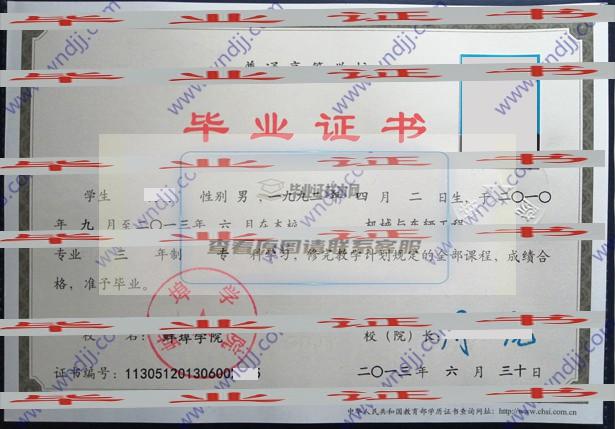 毕业证书
毕业证书
普通高等学校
毕业证书
毕业证书
学生 性别 男，一九九二年 四 月 二 日生，于二〇一〇
年 九 月至二〇一三年 六 月在本校 机械与车辆工程
毕业证书
专业 三 年制 专 科学习，修完教学计划规定的全部课程，成绩合
格，准予毕业。
毕业证样本网
查看原图请联系客服
毕业证书
校 名：蚌埠学院 校（院）长
证书编号：11305120130600 二〇一三年 六 月 三十日
毕业证书
中华人民共和国教育部学历证书查询网址：http://www.chsi.com.cn
www.wndjj.com